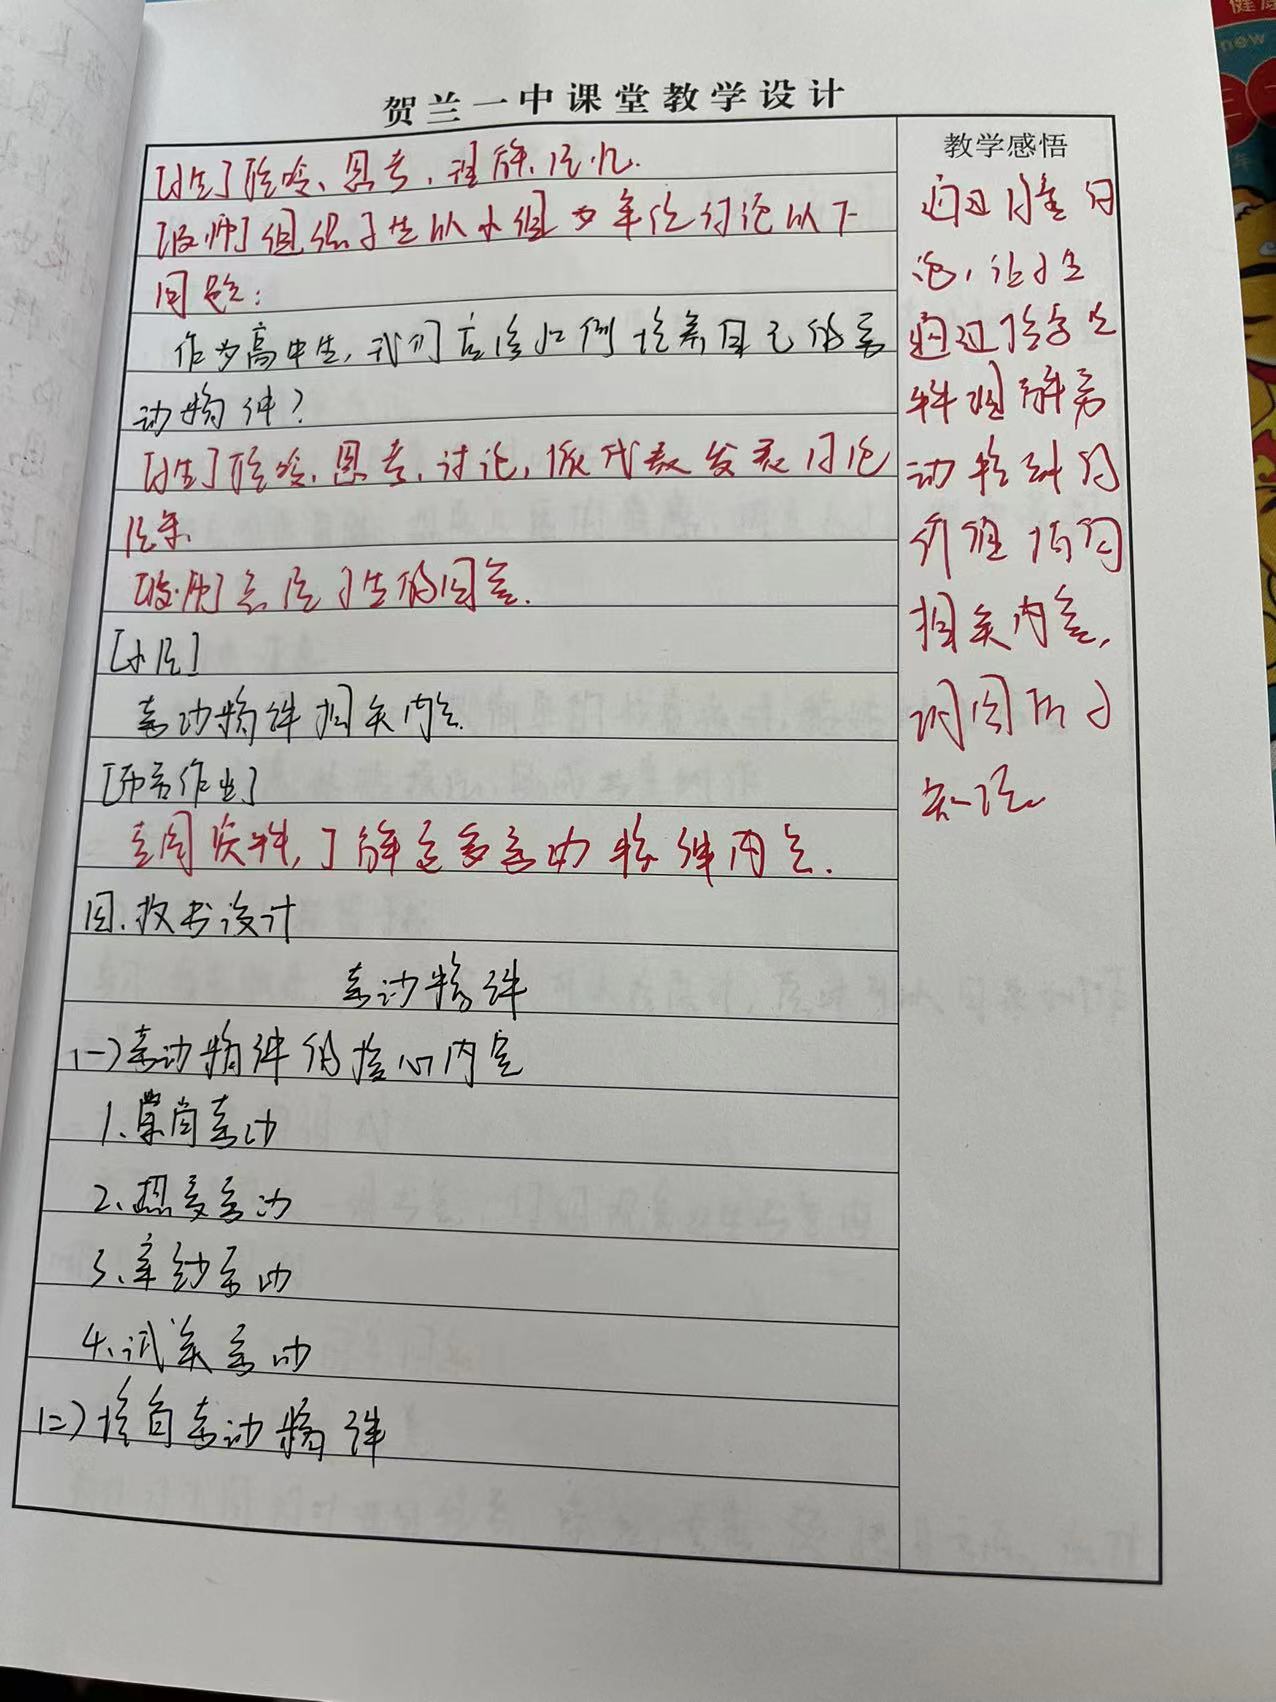 贺兰一中课堂教学设计
[学生]聆听、思考、理解、记忆.
[教师]组织学生以小组为单位讨论以下
问题:
作为高中生,我们应该如何培养自己的劳
动精神?
[学生]聆听、思考、讨论,派代表发表讨论
结果.
[教师]总结学生的回答.
[小结]
劳动精神相关内容.
[布置作业]
查阅资料,了解更多劳动精神内容.
四.板书设计
劳动精神
(一)劳动精神的核心内容
1、崇尚劳动
2、热爱劳动
3、辛勤劳动
4、诚实劳动
(二)培育劳动精神
教学感悟
通过
让学生
通过
理解劳
动精神的
相关内容,
巩固所学
知识.
健康
new
年